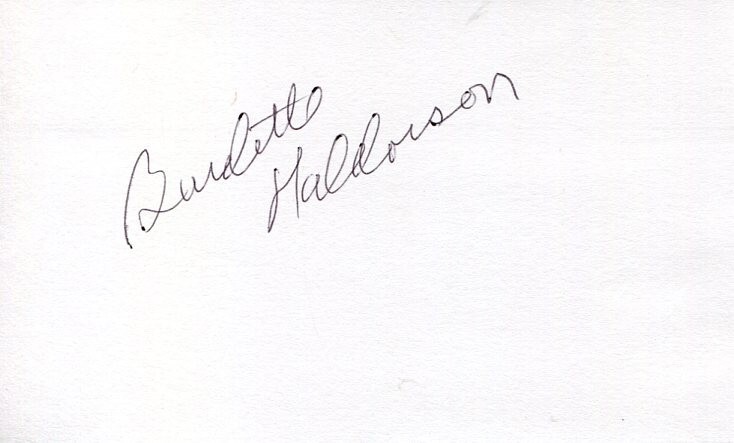 Burdette
Haldorson